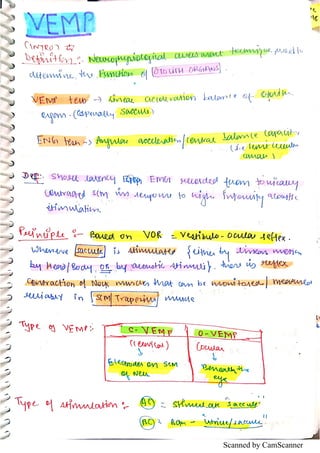 VEMP
(INTRO)
Definition :- Neurophysiological assessment technique used to
determine the function of OTOLITH ORGANS
VEMP test → Linear acceleration balance of otolith
organ. (especially Saccule)
ENG test → Angular acceleration/
(i.e. semi circular
canals)
DEF : Short latency EMG recorded from tonically
contracted SCM in response to high intensity acoustic
stimulation.
Principle :- Based on VOR = Vestibulo-ocular reflex.
Whenever saccule is stimulated {either by linear motion
by Head/Body OR by acoustic stimuli}. there is reflex
contraction of Neck muscles that can be monitored/measured
reliably in SCM Trapezius muscle
Type of VEMP:-
C-VEMP O-VEMP
(cervical) (ocular)
Electrodes on SCM Beneath the
of Neck eye
Type of stimulation :- AC = stimulate "saccule"
BC = Both - "utricle/saccule"
Scanned by CamScanner